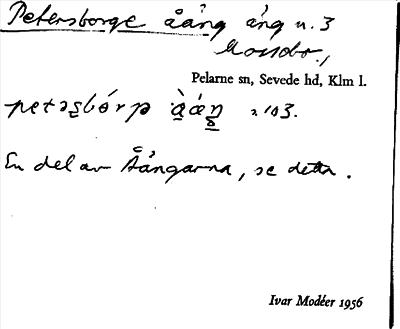 Petersborge åäng äng n. 3
Mossebo.,
Pelarne sn, Sevede hd, Klm l.
En del av Åängarna, se detta.
Ivar Modéer 1956